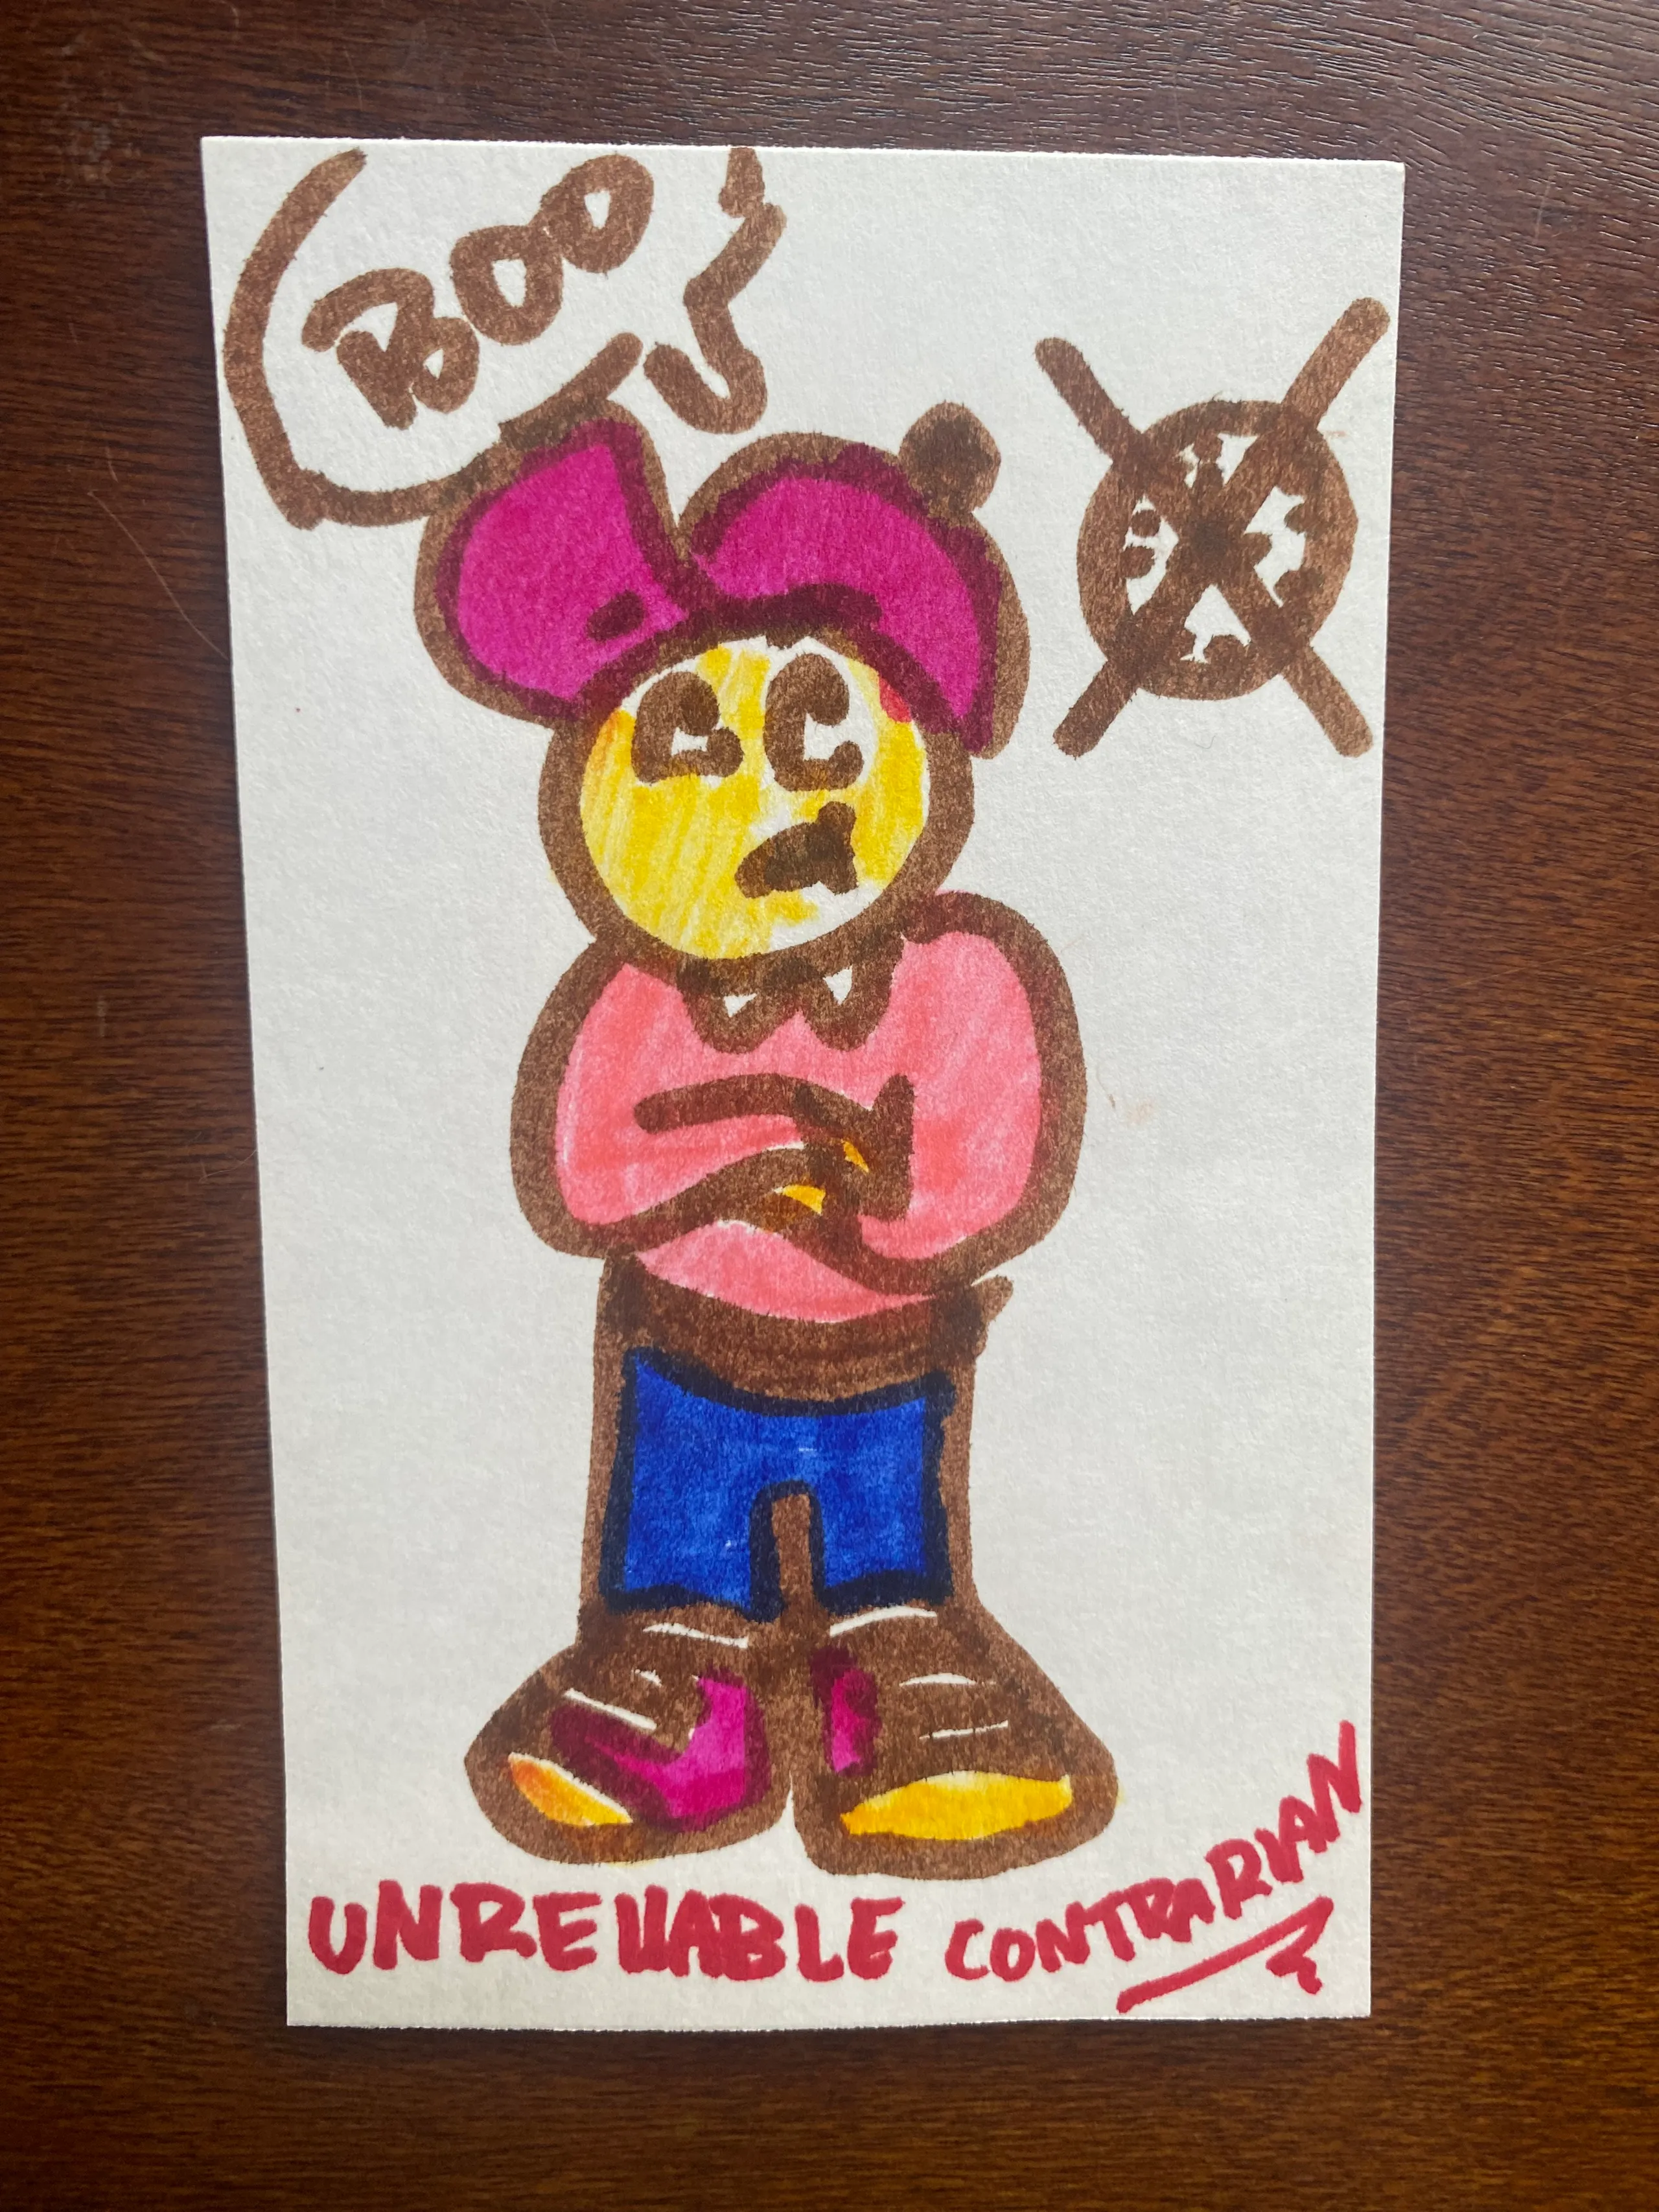 BOO
UNRELIABLE CONTRARIAN